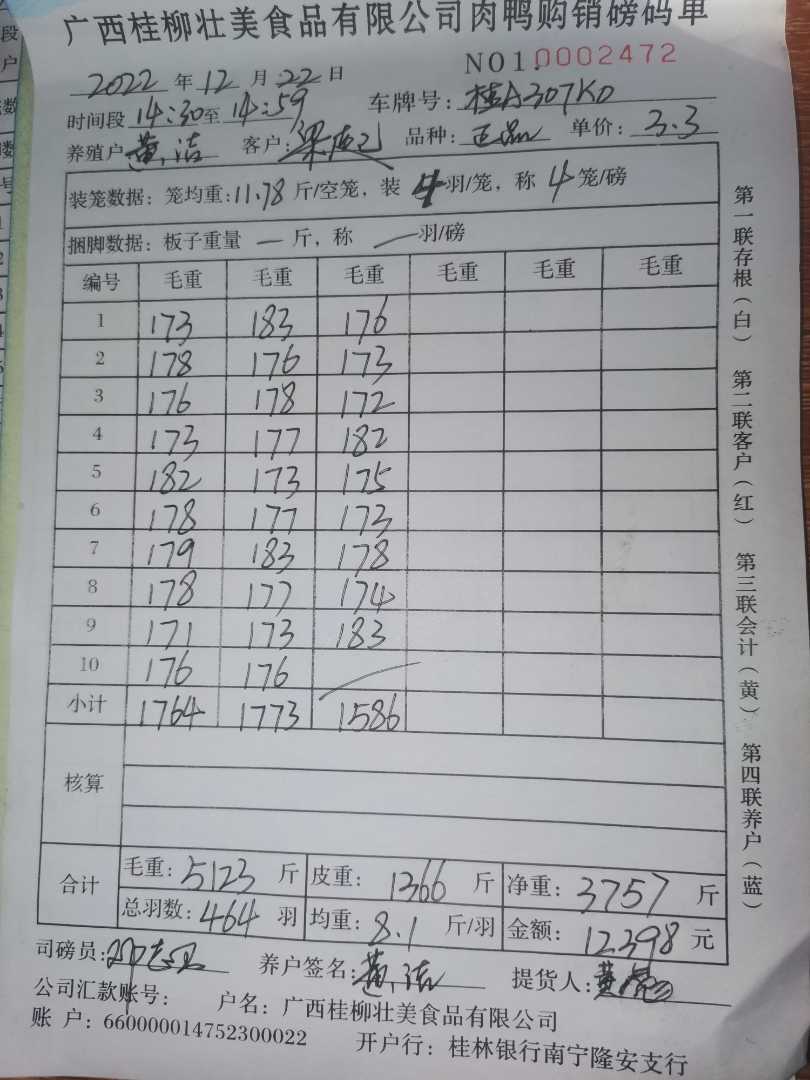 广西桂柳壮美食品有限公司肉鸭购销磅码单
NO1. 0002472
2022 年 12 月 22 日
时间段 14:30 至 14:59 车牌号: 桂A307KD
养殖户 黄洁 客户: 梁 品种: 正品 单价: 3.3
装笼数据: 笼均重: 11.78 斤/空笼, 装 4 羽/笼, 称 4 笼/磅
捆脚数据: 板子重量 — 斤, 称 — 羽/磅
编号 毛重 毛重 毛重 毛重 毛重 毛重
1 173 183 176
2 178 176 173
3 176 178 172
4 173 177 182
5 182 173 175
6 178 177 173
7 179 183 178
8 178 177 174
9 171 173 183
10 176 176
小计 1764 1773 1586
核算
合计 毛重: 5123 斤 皮重: 1366 斤 净重: 3757 斤
总羽数: 464 羽 均重: 8.1 斤/羽 金额: 12398 元
司磅员: 养户签名: 黄洁 提货人: 黄
公司汇款账号: 户名: 广西桂柳壮美食品有限公司
账 户: 660000014752300022 开户行: 桂林银行南宁隆安支行
第一联存根(白) 第二联客户(红) 第三联会计(黄) 第四联养户(蓝)